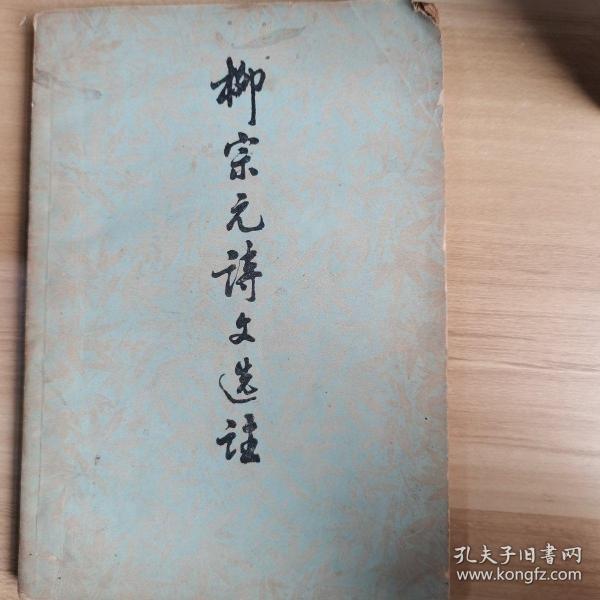 柳宗元詩文选註
孔夫子旧書网
www.kongfz.com